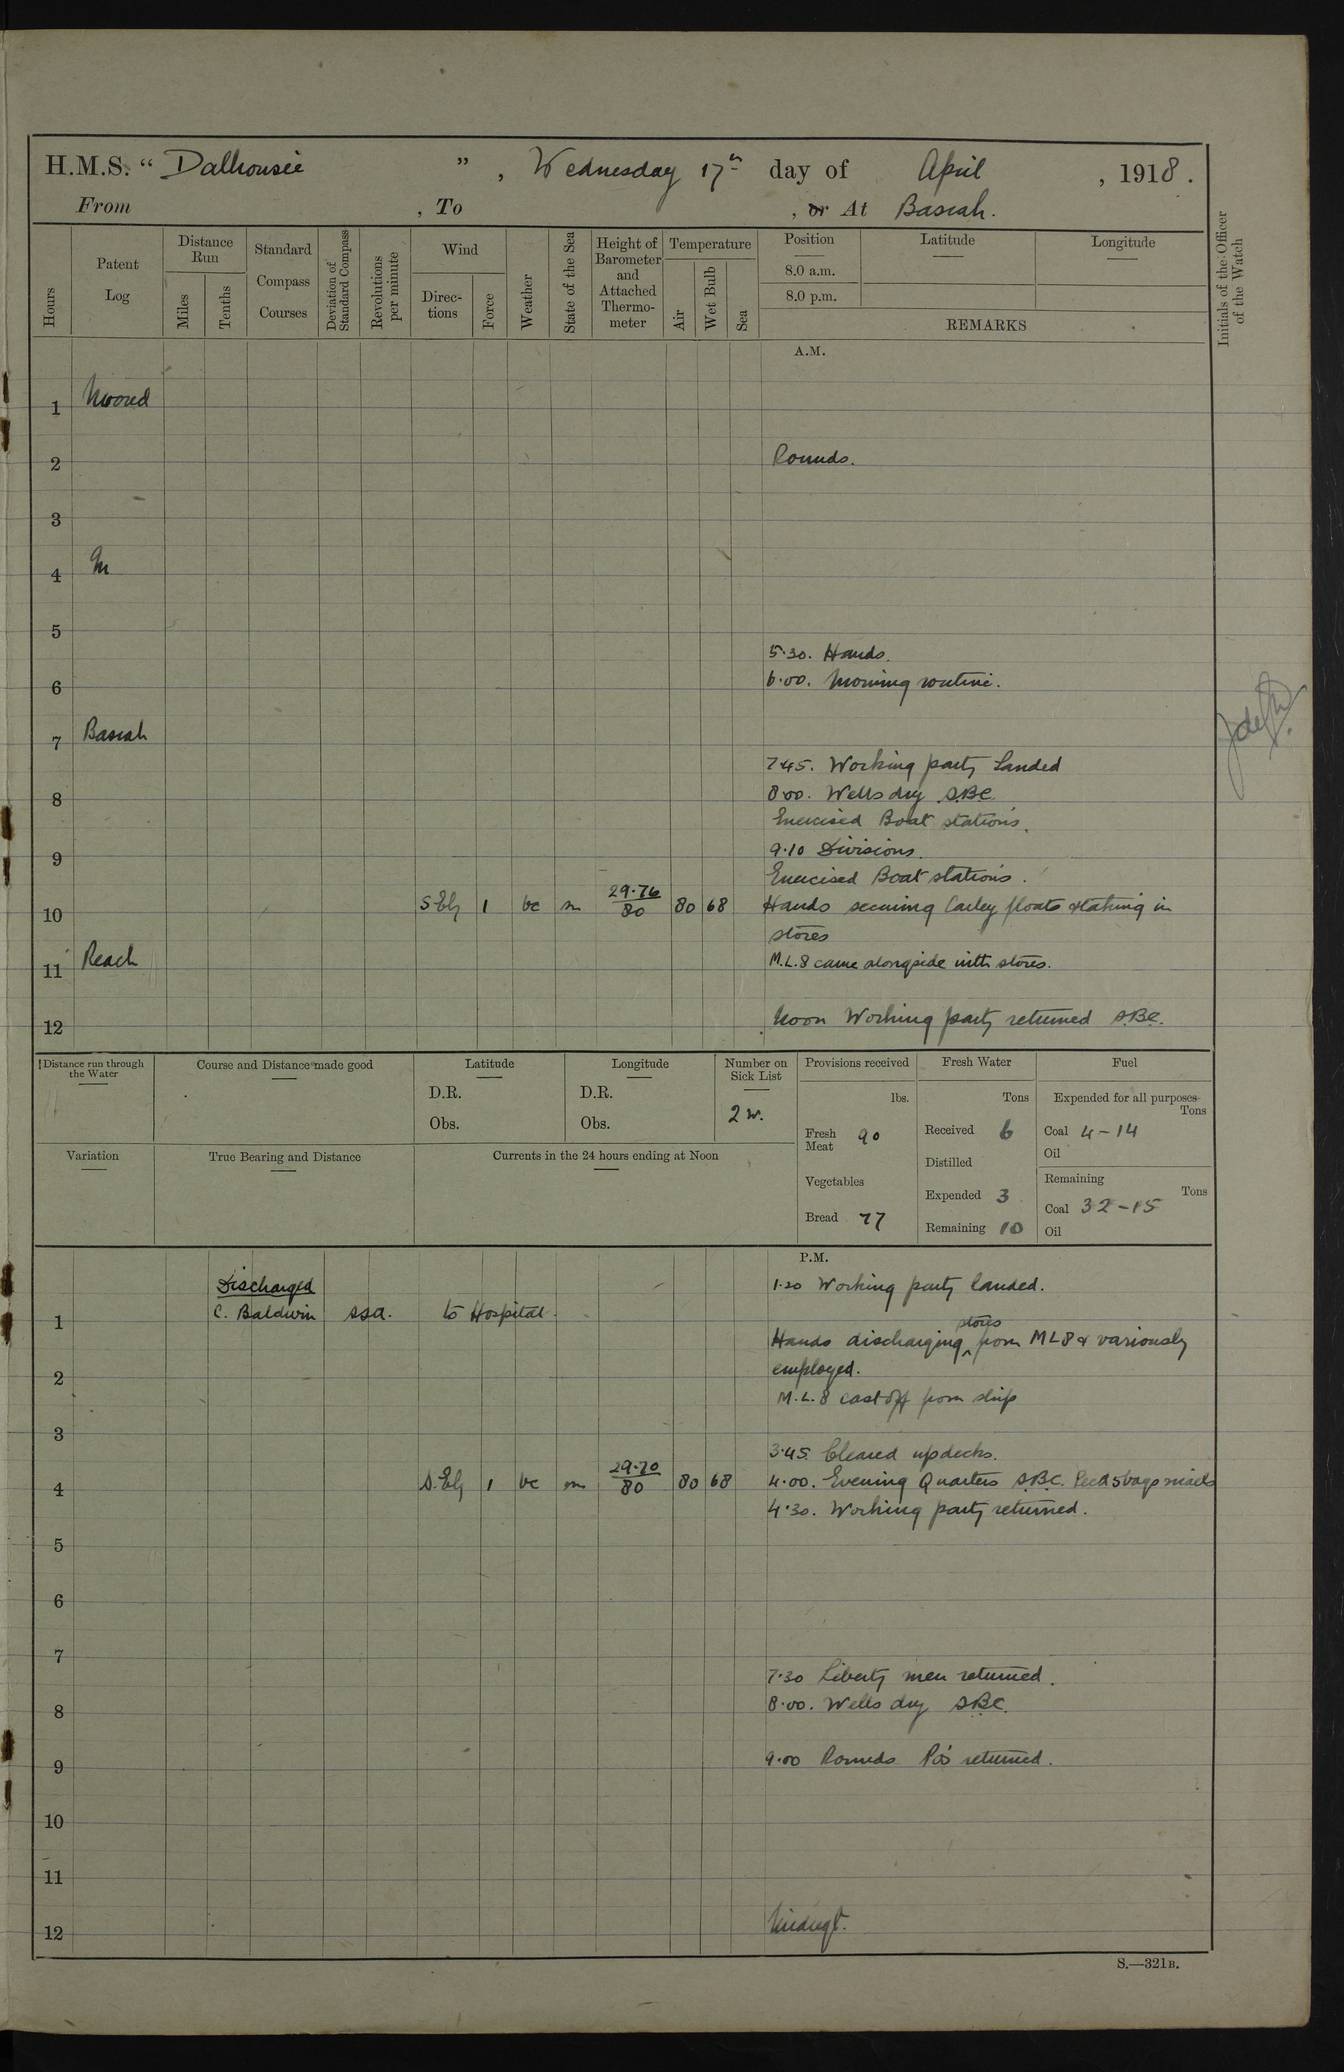 H.M.S. “ Dalhousie ”, Wednesday 17th day of April, 1918.
From , To , or At Basrah.
Hours
Patent Log
Distance Run
Miles
Tenths
Standard Compass Courses
Deviation of Standard Compass
Revolutions per minute
Wind
Directions
Force
Weather
State of the Sea
Height of Barometer and Attached Thermometer
Temperature
Air
Wet Bulb
Sea
Position
8.0 a.m.
8.0 p.m.
Latitude
Longitude
REMARKS
Initials of the Officer of the Watch
A.M.
1 Moored
2 Rounds.
3
4 In
5
5.30. Hands.
6 6.00. Morning routine.
7 Basrah
7.45. Working party Landed
8 8.00. Wells dry S.B.C.
Exercised Boat stations.
9 9.10 Divisions.
Exercised Boat stations.
10 S.Ely 1 bc m 29.76/80 80 68 Hands securing Carley floats & taking in
stores
11 Reach M.L.8 came alongside with stores.
12 Noon Working party returned S.B.C.
Distance run through the Water
Course and Distance made good
Latitude
D.R.
Obs.
Longitude
D.R.
Obs.
Number on Sick List
2 w.
Variation
True Bearing and Distance
Currents in the 24 hours ending at Noon
Provisions received
lbs.
Fresh Meat 90
Vegetables
Bread 77
Fresh Water
Tons
Received 6
Distilled
Expended 3
Remaining 10
Fuel
Expended for all purposes
Tons
Coal 4-14
Oil
Remaining
Tons
Coal 32-15
Oil
P.M.
Discharged
1.20 Working party landed.
1 C. Baldwin SSA. to Hospital.
stores
Hands discharging ‸ from ML8 & variously
2 employed.
M.L.8 cast off from ship
3
3.45 Cleared up decks.
4 S.Ely 1 bc m 29.70/80 80 68 4.00. Evening Quarters S.B.C. Recd 5 bags mails
4.30. Working party returned.
5
6
7
7.30 Liberty men returned.
8 8.00. Wells dry S.B.C.
9 9.00 Rounds PO's returned.
10
11
12 Midngt.
S.—321B.